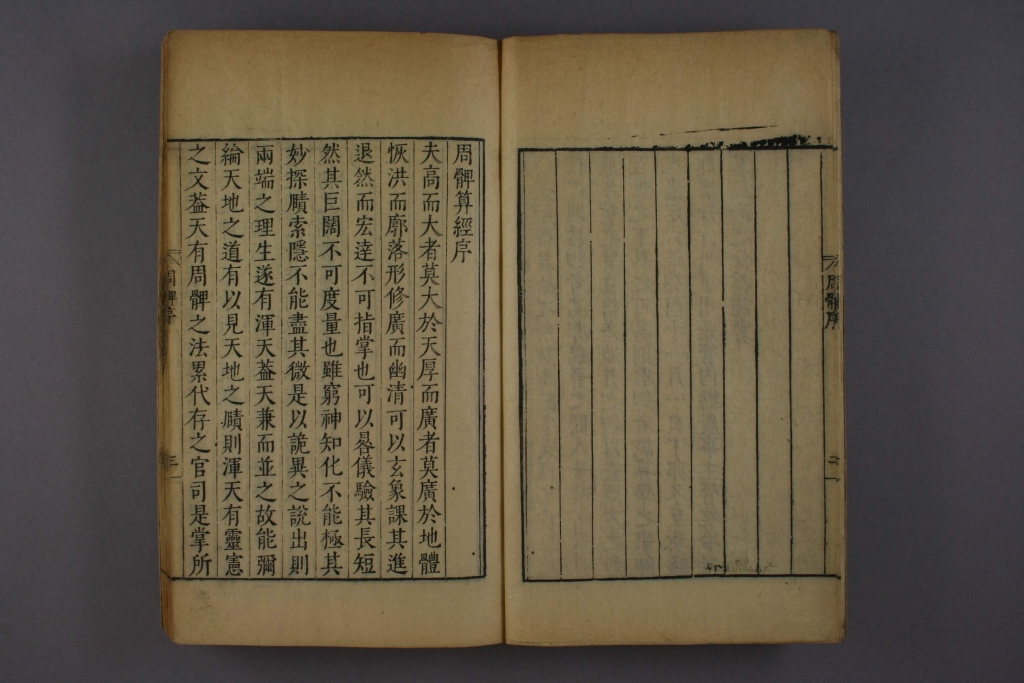 周髀序
二
周髀算經序
夫高而大者莫大於天厚而廣者莫廣於地體
恢洪而廓落形修廣而幽清可以玄象課其進
退然而宏逹不可指掌也可以晷儀驗其長短
然其巨闊不可度量也雖窮神知化不能極其
妙探賾索隱不能盡其微是以詭異之說出則
兩端之理生遂有渾天葢天兼而並之故能彌
綸天地之道有以見天地之賾則渾天有靈憲
之文葢天有周髀之法累代存之官司是掌所
周髀序
三